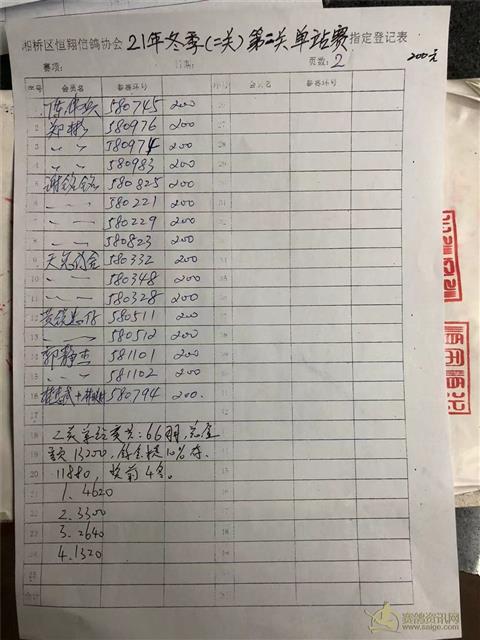 湘桥区恒翔信鸽协会 21年冬季(二关)第二关单站赛 指定登记表
赛项: 日期: 页数: 2 200元
序号 会员名 参赛环号 序号 会员名 参赛环号
1 580745 200
2 郑彬 580976 200 27
3 〃 〃 580974 200
4 〃 〃 580983 200 29
5 谢铭铭 580825 200 30
6 〃 〃 580221 200
7 〃 〃 580229 200
8 〃 〃 580823 200
9 580332 200
10 〃 〃 580348 200
11 〃 〃 580328 200
12 580511 200
13 580512 200
14 郭静杰 581101 200
15 〃 〃 581102 200
16 580794 200.
17
18 二关单站赛共:66羽,总金
19 额13200,
20 11880 奖前4名。
21 1. 4620
22 2. 3300
23 3. 2640
24 4. 1320
25
合计
赛鸽资讯网
www.saige.com